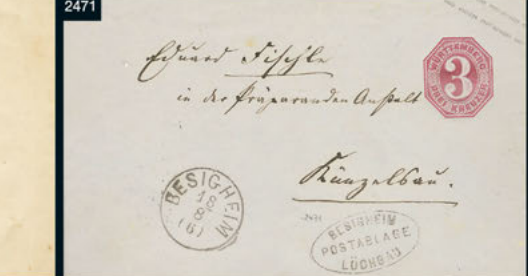 2471
Eduard Fischle
in der Präparanden Anstalt
WÜRTTEMBERG
3
DREI KREUZER
Künzelsau.
BESIGHEIM
18
8
(6)
BESIGHEIM
POSTABLAGE
LÖCHGAU